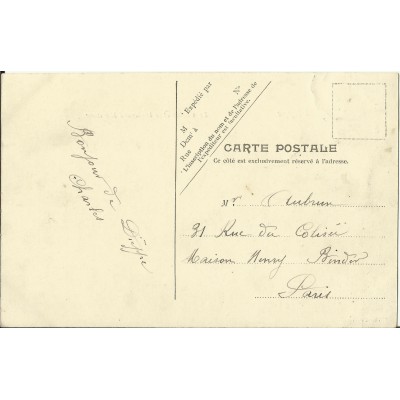 M Expédié par
Demt à
Rue N°
L'inscription du nom et de l'adresse de
l'expéditeur est facultative.
CARTE POSTALE
Ce côté est exclusivement réservé à l'adresse.
Bonjour de Dieppe
Charles
Mr. Aubrun
31 Rue du Colisée
Maison Henry Binder
Paris